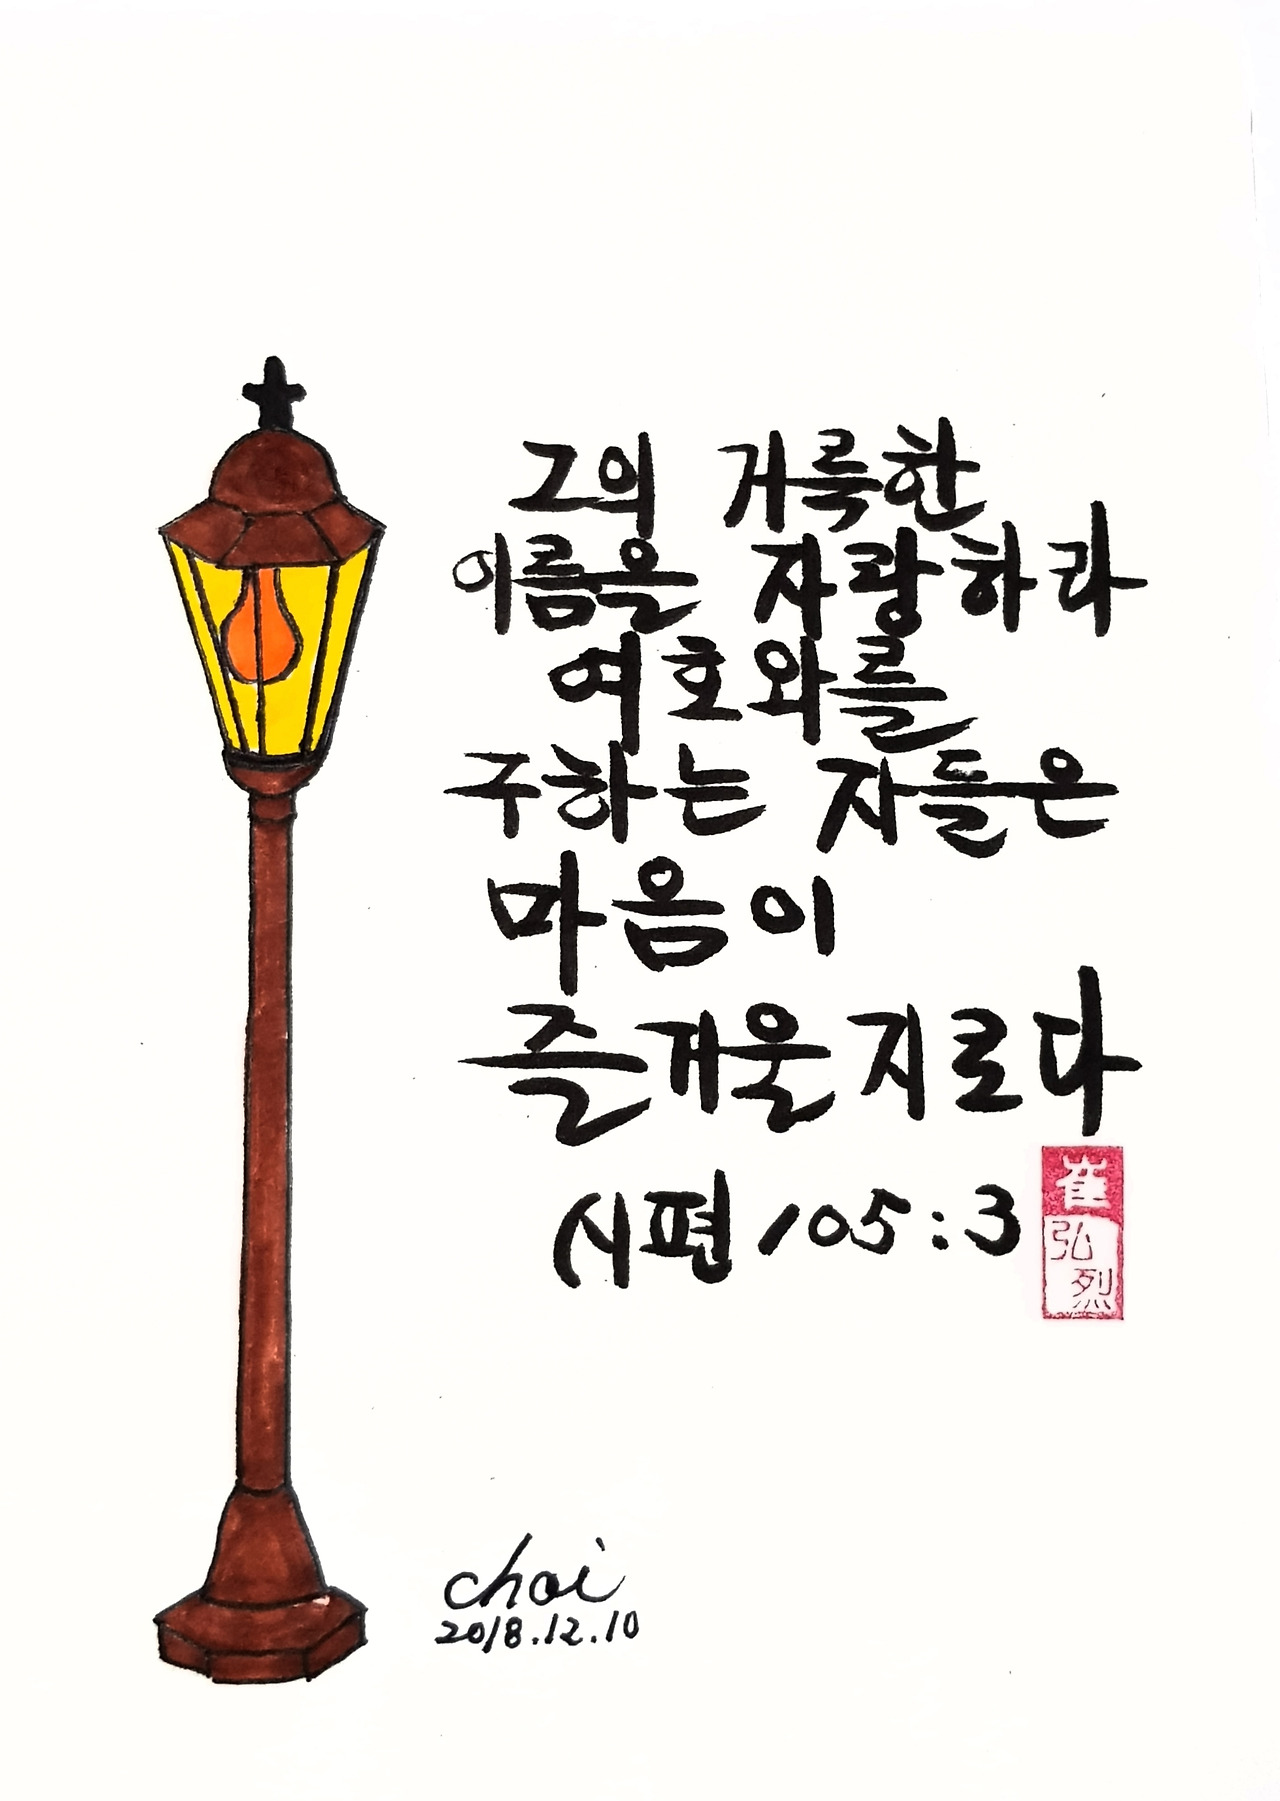 그의 거룩한
이름을 자랑하라
여호와를
구하는 자들은
마음이
즐거울지로다
시편 105:3
崔
弘
烈
choi
2018.12.10